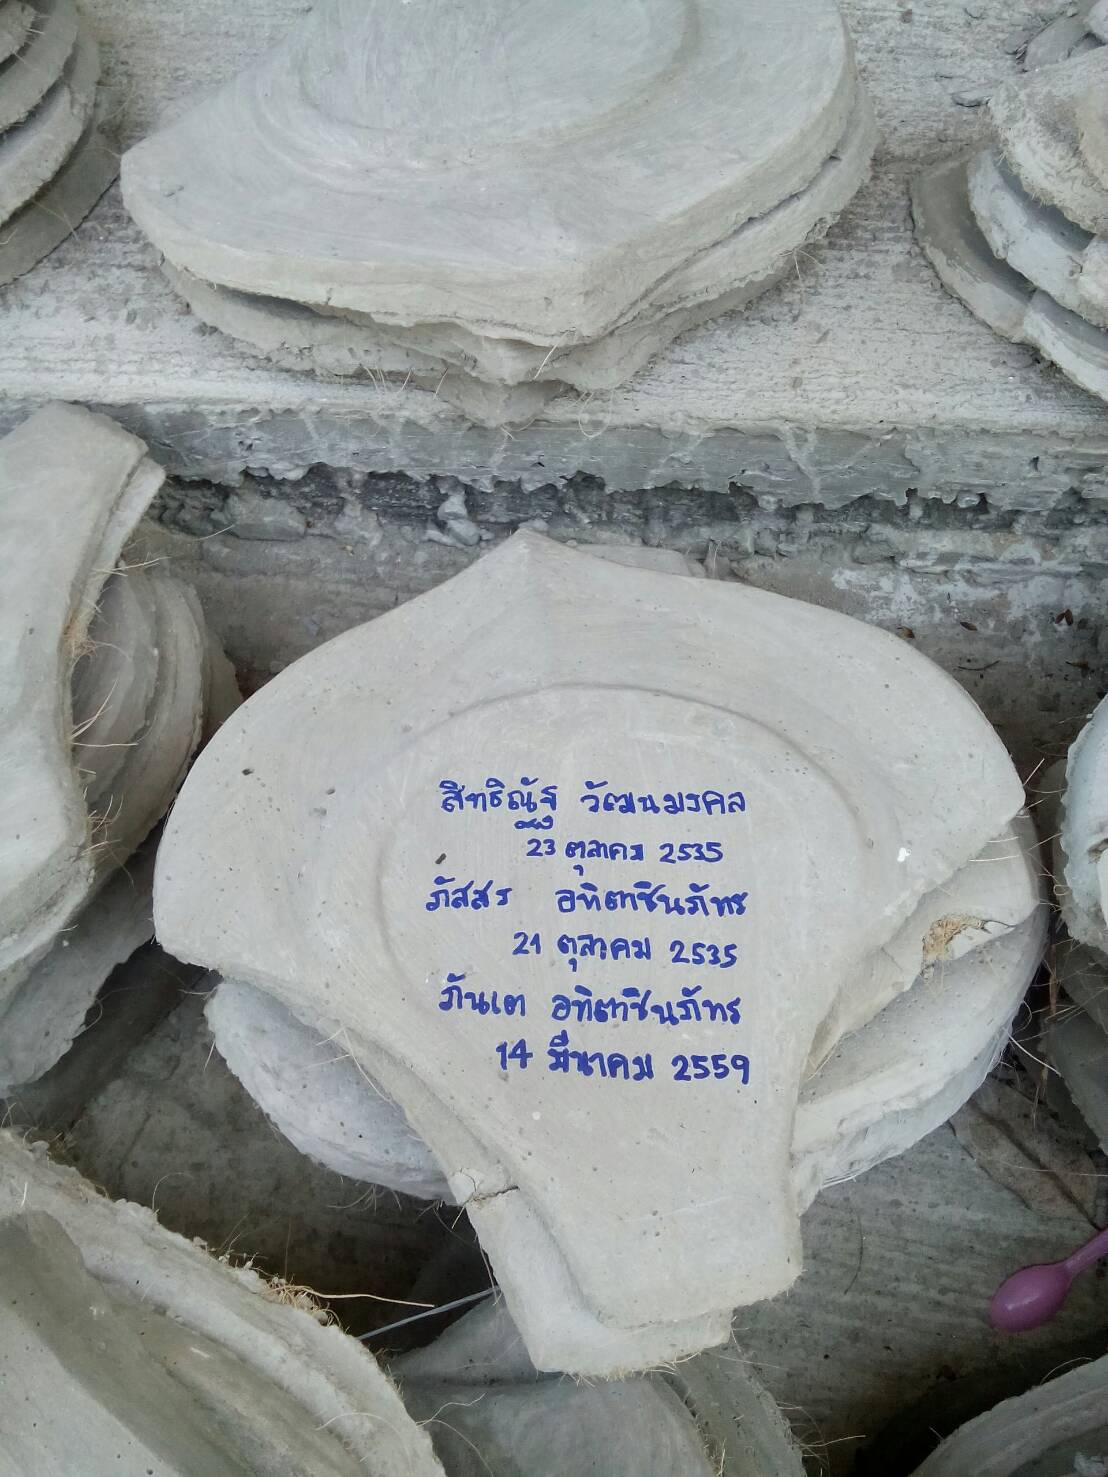 สิทธิณัฐ วัฒนมงคล
23 ตุลาคม 2535
ภัสสร อทิตาชินภัทร
21 ตุลาคม 2535
ภันเต อทิตาชินภัทร
14 มีนาคม 2559